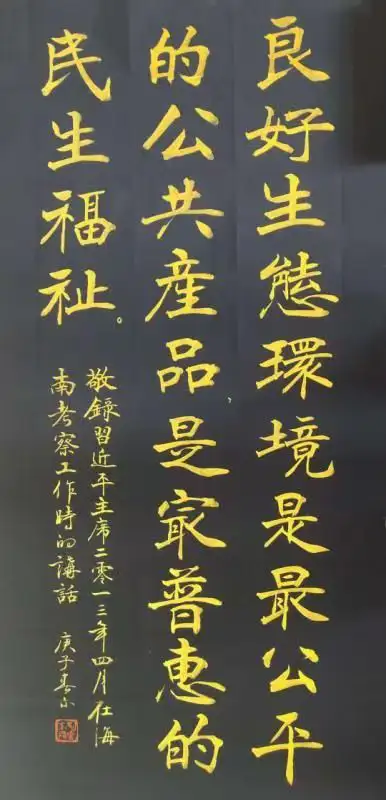 良好生態環境是最公平
的公共産品，是㝡普惠的
民生福祉。
敬錄習近平主席二零一三年四月在海
南考察工作時的講話
庚子春